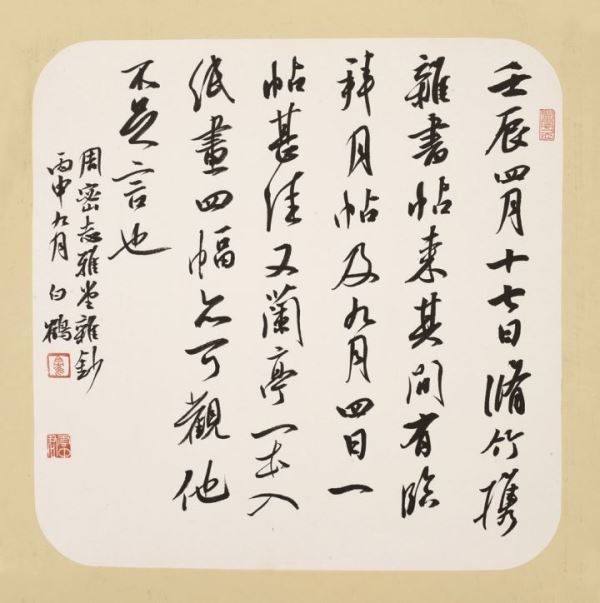 壬辰四月十七日脩竹攜
雜書帖来其間有臨
拜月帖及九月四日一
帖甚佳又蘭亭一本入
紙畫四幅亦可觀他
不足言也
周密志雅堂雜鈔
丙申九月 白鶴